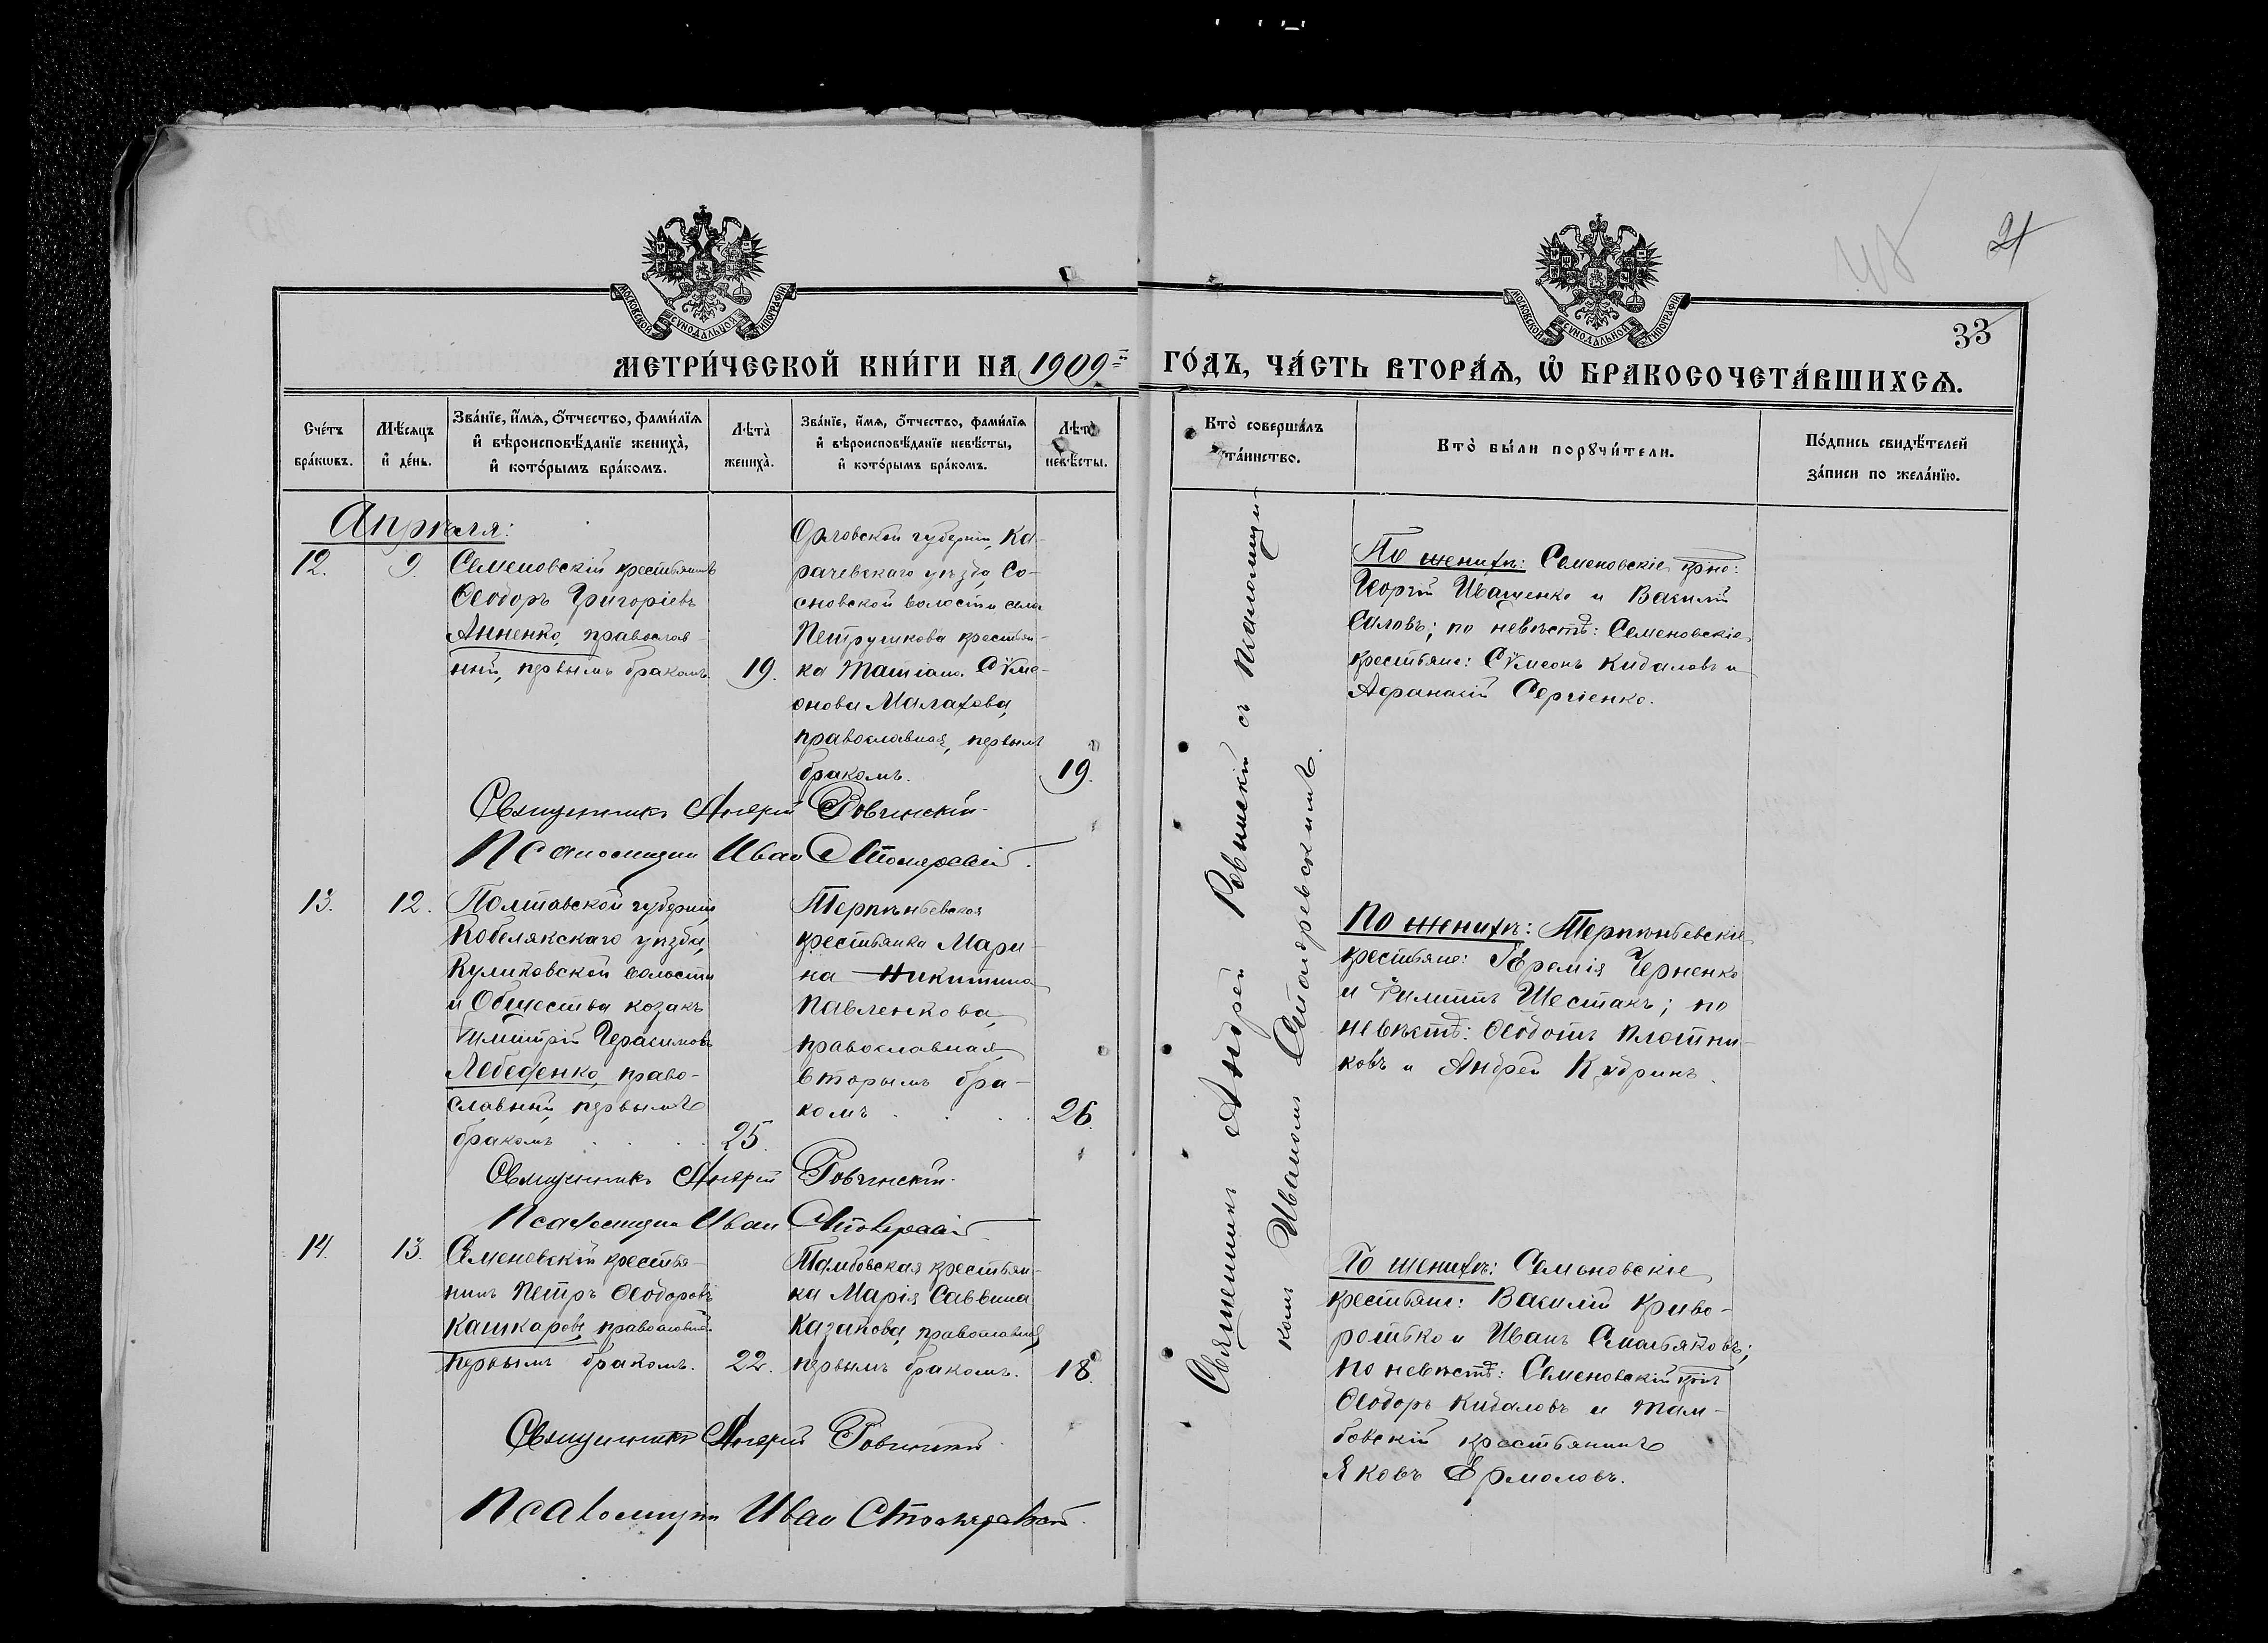 МОСКОВСКОЙ СѴНОДАЛЬНОЙ ТИПОГРАФІИ
МОСКОВСКОЙ СѴНОДАЛЬНОЙ ТИПОГРАФІИ
21
33
МЕТРИ́ЧЕСКОЙ КНИ́ГИ НА 1909й ГО́ДЪ, ЧА́СТЬ ВТОРА́Ѧ, Ѡ҆ БРАКОСОЧЕТА́ВШИХСѦ.
Сче́тъ бра́кѡвъ.
Мѣ́сяцъ и҆ де́нь.
Зва́нїе, и҆́мѧ, ѻ҆́тчество, фамилїѧ и҆ вѣроисповѣ́данїе жениха̀, и҆ кото́рымъ бра́комъ.
Лѣта̀ жениха̀.
Зва́нїе, и҆́мѧ, ѻ҆́тчество, фами́лїѧ и҆ вѣроисповѣ́данїе невѣ́сты, и҆ кото́рымъ бра́комъ.
Лѣта̀ невѣ́сты.
Кто̀ соверша́лъ та́инство.
Кто̀ бы́ли порꙋчи́тели.
По́дпись свидѣ́телей за́писи по жела́нїю.
Апрѣля:
12.
9.
Семеновскій крестьянинъ
Ѳеодоръ Григоріевъ
Анненко, православ-
ный, первымъ бракомъ.
19.
Орловской губерніи, Ка-
рачевскаго уѣзда, Со-
сновской волости села
Петрушкова крестьян-
ка Татіана Сѵме-
онова Малахова,
православная, первымъ
бракомъ.
19.
По женихѣ: Семеновскіе крне:
Георгій Иващенко и Василій
Силовъ; по невѣстѣ: Семеновскіе
крестьяне: Сѵмеонъ Кидаловъ и
Афанасій Сергіенко.
Священникъ Андрей Ровинскій
Псаломщикъ Иванъ
13.
12.
Полтавской губерніи
Кобелякскаго уѣзда,
Куликовской волости
и Общества козакъ
Димитрій Герасимовъ
Лебеденко, право-
славный, первымъ
бракомъ
25.
Терпѣньевская
крестьянка Мари-
на Никитина
Павленкова,
православная,
вторымъ бра-
комъ
26.
По женихѣ: Терпѣньевскіе
крестьяне: Іеремія Черненко
и Филиппъ Шестакъ; по
невѣстѣ: Ѳеодотъ Плотни-
ковъ и Андрей Кудринъ.
Священникъ Андрей Ровинскій
Псаломщикъ Иванъ
14.
13.
Семеновскій крестья-
нинъ Петръ Ѳеодоровъ
Кашкаровъ православный
первымъ бракомъ.
22.
Тамбовская крестьян-
ка Марія Саввина
Казакова, православная
первымъ бракомъ.
18.
По женихѣ: Семеновскіе
крестьяне: Василій Криво-
ротько и Иванъ Смольяковъ;
по невѣстѣ: Семеновскій крнъ
Ѳеодоръ Кидаловъ и Там-
бовскій крестьянинъ
Яковъ Ермоловъ.
Священникъ Андрей Ровинскій
Псаломщикъ Иванъ
Священникъ Андрей Ровинскій съ псаломщи-
комъ Иваномъ